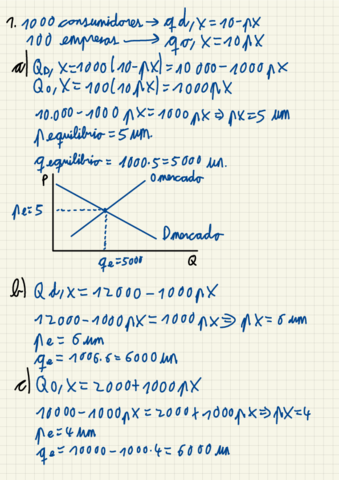 1. 1000 consumidores → qd,x = 10-px
100 empresas → qo,x = 10px
a) QD,X = 1000(10-px) = 10 000 - 1000px
Qo,X = 100(10px) = 1000px
10.000 - 1000 px = 1000px ⇒ px = 5 um
p equilibrio = 5 um.
q equilibrio = 1000·5 = 5000 un.
P
O mercado
pe = 5
D mercado
qe = 5000
Q
b) Qd,x = 12000 - 1000px
12000 - 1000px = 1000px ⇒ px = 6 um
pe = 6 um
qe = 1000·6 = 6000 un
c) Qo,x = 2000 + 1000px
10000 - 1000px = 2000 + 1000px ⇒ px = 4
pe = 4 um
qe = 10000 - 1000·4 = 6000 un